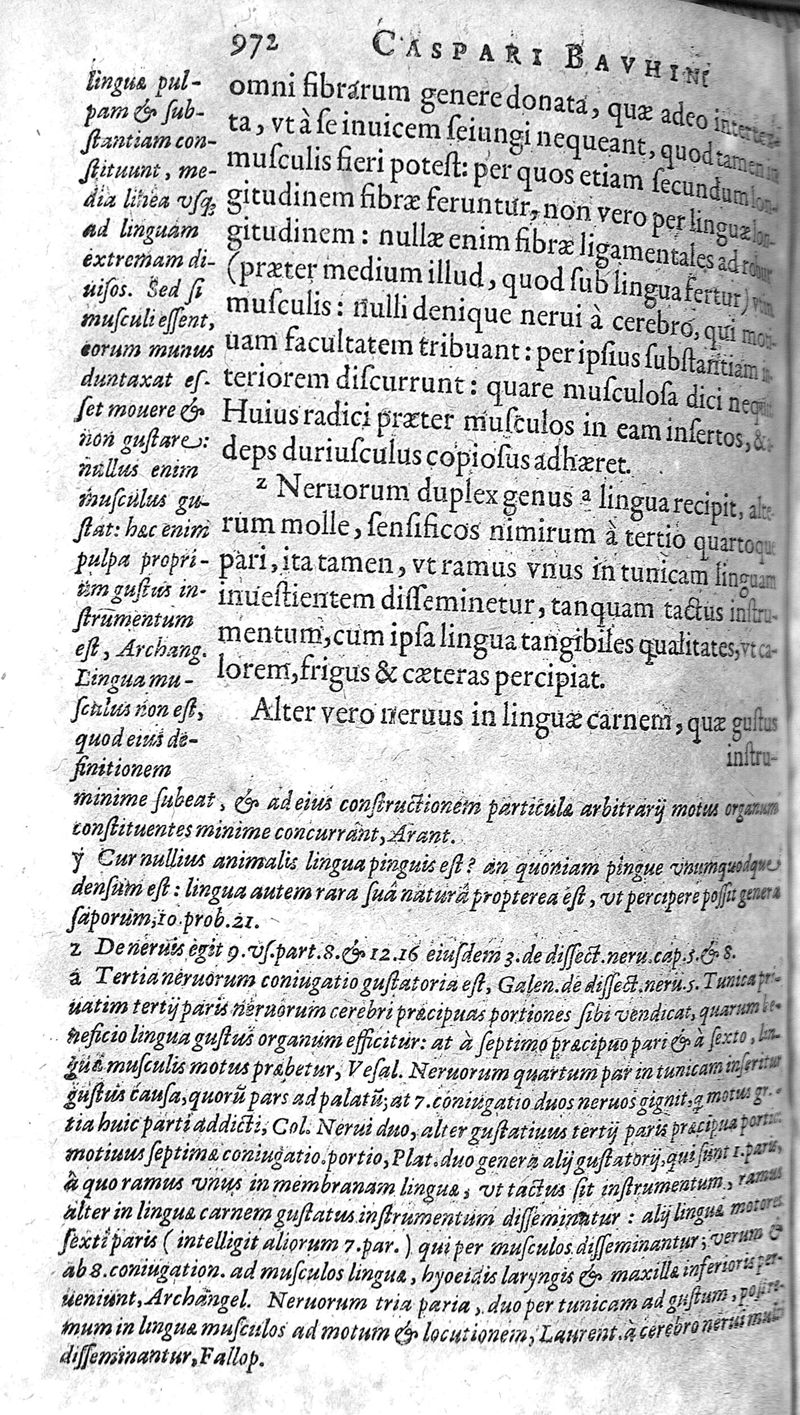 972 CASPARI BAVHINI
omni fibrarum genere donata, quæ adeo
ta, vt à se inuicem seiungi nequeant, quod tamen in
musculis fieri potest: per quos etiam secundum lon-
gitudinem fibræ feruntur, non vero per linguæ lon-
gitudinem: nullæ enim fibræ ligamentales ad robur
(præter medium illud, quod sub lingua fertur) vti in
musculis: nulli denique nerui à cerebro, qui moti-
uam facultatem tribuant: per ipsius substantiam in-
teriorem discurrunt: quare musculosa dici nequit
Huius radici præter musculos in eam insertos, & a-
deps duriusculus copiosus adhæret.
z Neruorum duplex genus a lingua recipit, alte-
rum molle, sensificos nimirum à tertio quartoque
pari, ita tamen, vt ramus vnus in tunicam linguam
inuestientem disseminetur, tanquam tactus instru-
mentum, cum ipsa lingua tangibiles qualitates, vt ca-
lorem, frigus & cæteras percipiat.
Alter vero neruus in linguæ carnem, quæ gustus
instru-
linguæ pul-
pam & sub-
stantiam con-
stituunt, me-
dia linea vsq;
ad linguam
extremam di-
uisos. Sed si
musculi essent,
eorum munus
duntaxat es-
set mouere &
non gustare:
nullus enim
musculus gu-
stat: hæc enim
pulpa propri-
um gustus in-
strumentum
est, Archang.
Lingua mu-
sculus non est,
quod eius de-
finitionem
minime subeat, & ad eius constructionem particulæ arbitrarij motus organum
constituentes minime concurrant, Arant.
y Cur nullius animalis lingua pinguis est? an quoniam pingue vnumquodque
densum est: lingua autem rara suâ naturâ propterea est, vt percipere possit genera
saporum, 10. prob. 21.
z De neruis egit 9. vs. part. 8. & 12. 16 eiusdem 3. de dissect. neru. cap. 5. & 8.
a Tertia neruorum coniugatio gustatoria est, Galen. de dissect. neru. 5. Tunica pri-
uatim tertij paris neruorum cerebri præcipuas portiones sibi vendicat, quarum be-
neficio lingua gustus organum efficitur: at à septimo præcipuo pari & à sexto, lin-
guæ musculis motus præbetur, Vesal. Neruorum quartum par in tunicam inseritur
gustus causa, quorũ pars ad palatũ; at 7. coniugatio duos neruos gignit, q motus gr.-
tia huic parti addicti, Col. Nerui duo, alter gustatiuus tertij paris præcipua portio
motiuus septimæ coniugatio. portio, Plat. duo genera alij gustatorij, qui sunt 1. paris,
à quo ramus vnus in membranam linguæ, vt tactus sit instrumentum, ramus
alter in linguæ carnem gustatus instrumentum disseminatur: alij linguæ motores
sexti paris (intelligit aliorum 7. par.) qui per musculos disseminantur; verum &
ab 8. coniugation. ad musculos linguæ, hyoeidis laryngis & maxillæ inferioris per-
ueniunt, Archangel. Neruorum tria paria, duo per tunicam ad gustum, postre-
mum in linguæ musculos ad motum & locutionem, Laurent. à cerebro neruis multi
disseminantur, Fallop.